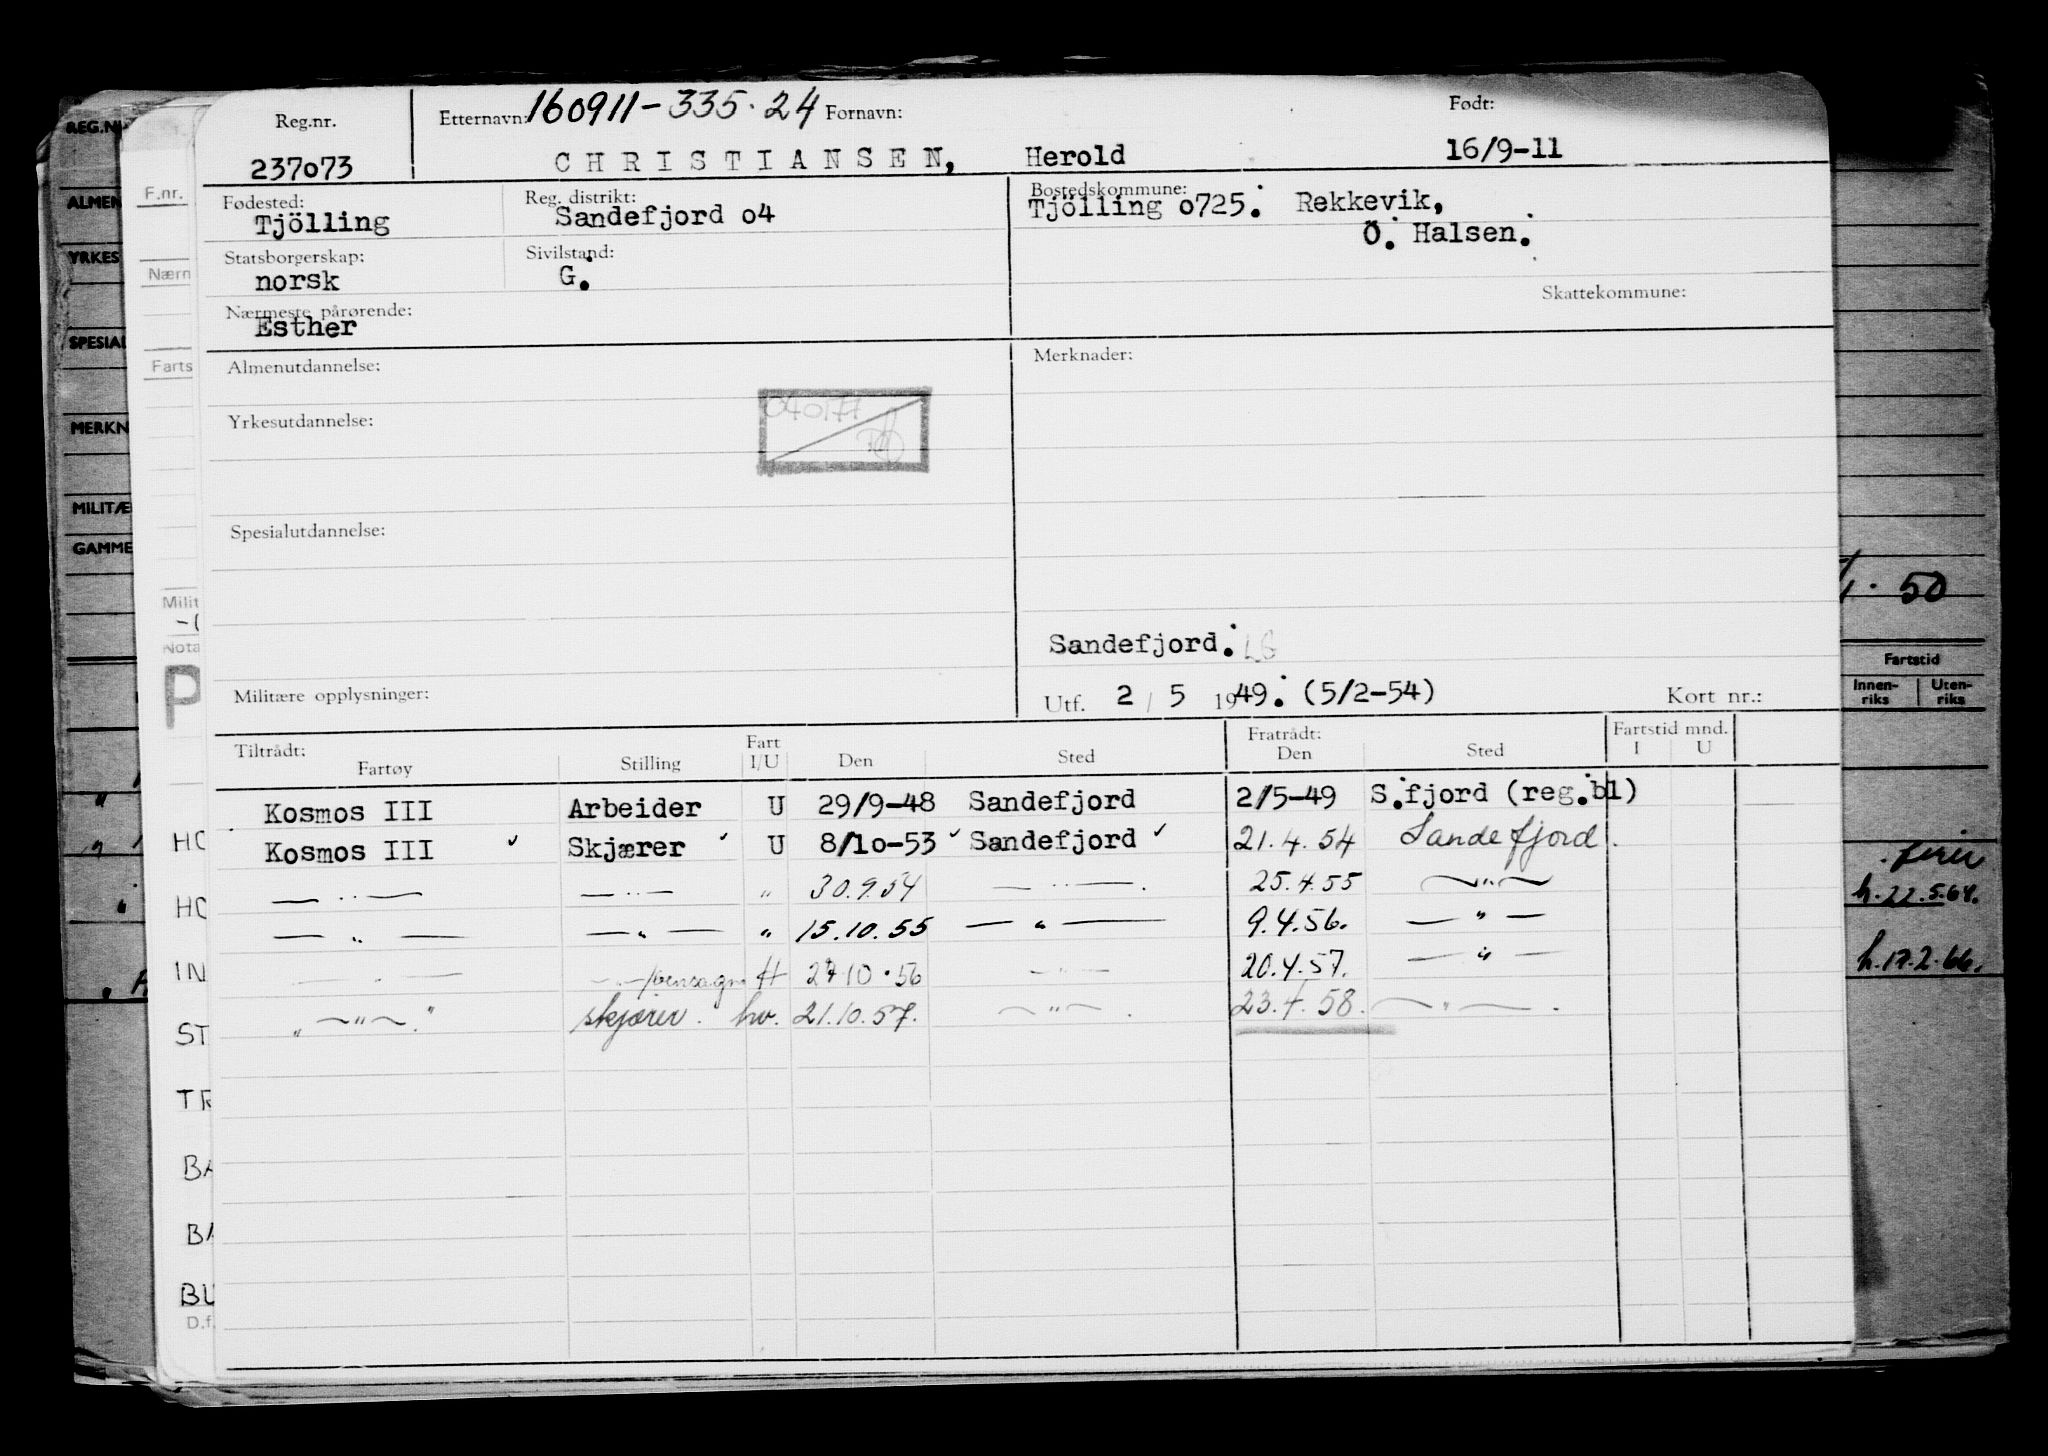 Reg.nr. Etternavn: 160911-335.24 Fornavn: Født:
237o73 CHRISTIANSEN, Herold 16/9-11
Fødested: Reg. distrikt: Bostedskommune:
Tjölling Sandefjord o4 Tjölling o725. Rekkevik,
Ö. Halsen.
Statsborgerskap: Sivilstand:
norsk G.
Skattekommune:
Nærmeste pårørende:
Esther
Almenutdannelse: Merknader:
040177
Yrkesutdannelse:
Spesialutdannelse:
Sandefjord. LG
Militære opplysninger: Utf. 2 / 5 1949. (5/2-54) Kort nr.:
Tiltrådt: Fart Fratrådt: Fartstid mnd.
Fartøy Stilling I/U Den Sted Den Sted I U
Kosmos III Arbeider U 29/9-48 Sandefjord 2/5-49 S.fjord (reg.bl)
Kosmos III ✓ Skjærer ✓ U 8/1o-53 ✓ Sandefjord ✓ 21.4.54 Sandefjord.
— " — — " — " 30.9.54 — " —. 25.4.55 — " —
— " — — " — " 15.10.55 — " — 9.4.56. — " —
— " — — " — 27 10.56 — " — 20.4.57. — " —
" — " — " skjærer. hv. 21.10.57. — " —. 23.4.58. — " —.
REG.N
ALMEN
YRKES
SPESIAL
MERKN
MILITÆ
GAMME
F.nr.
Nærn
Farts
Milit
Nota
P
HO
HO
IN
ST
TR
BA
BA
BU
D.f.
50
Fartstid
Innen-riks Uten-riks
h.22.5.64.
h.17.2.66.